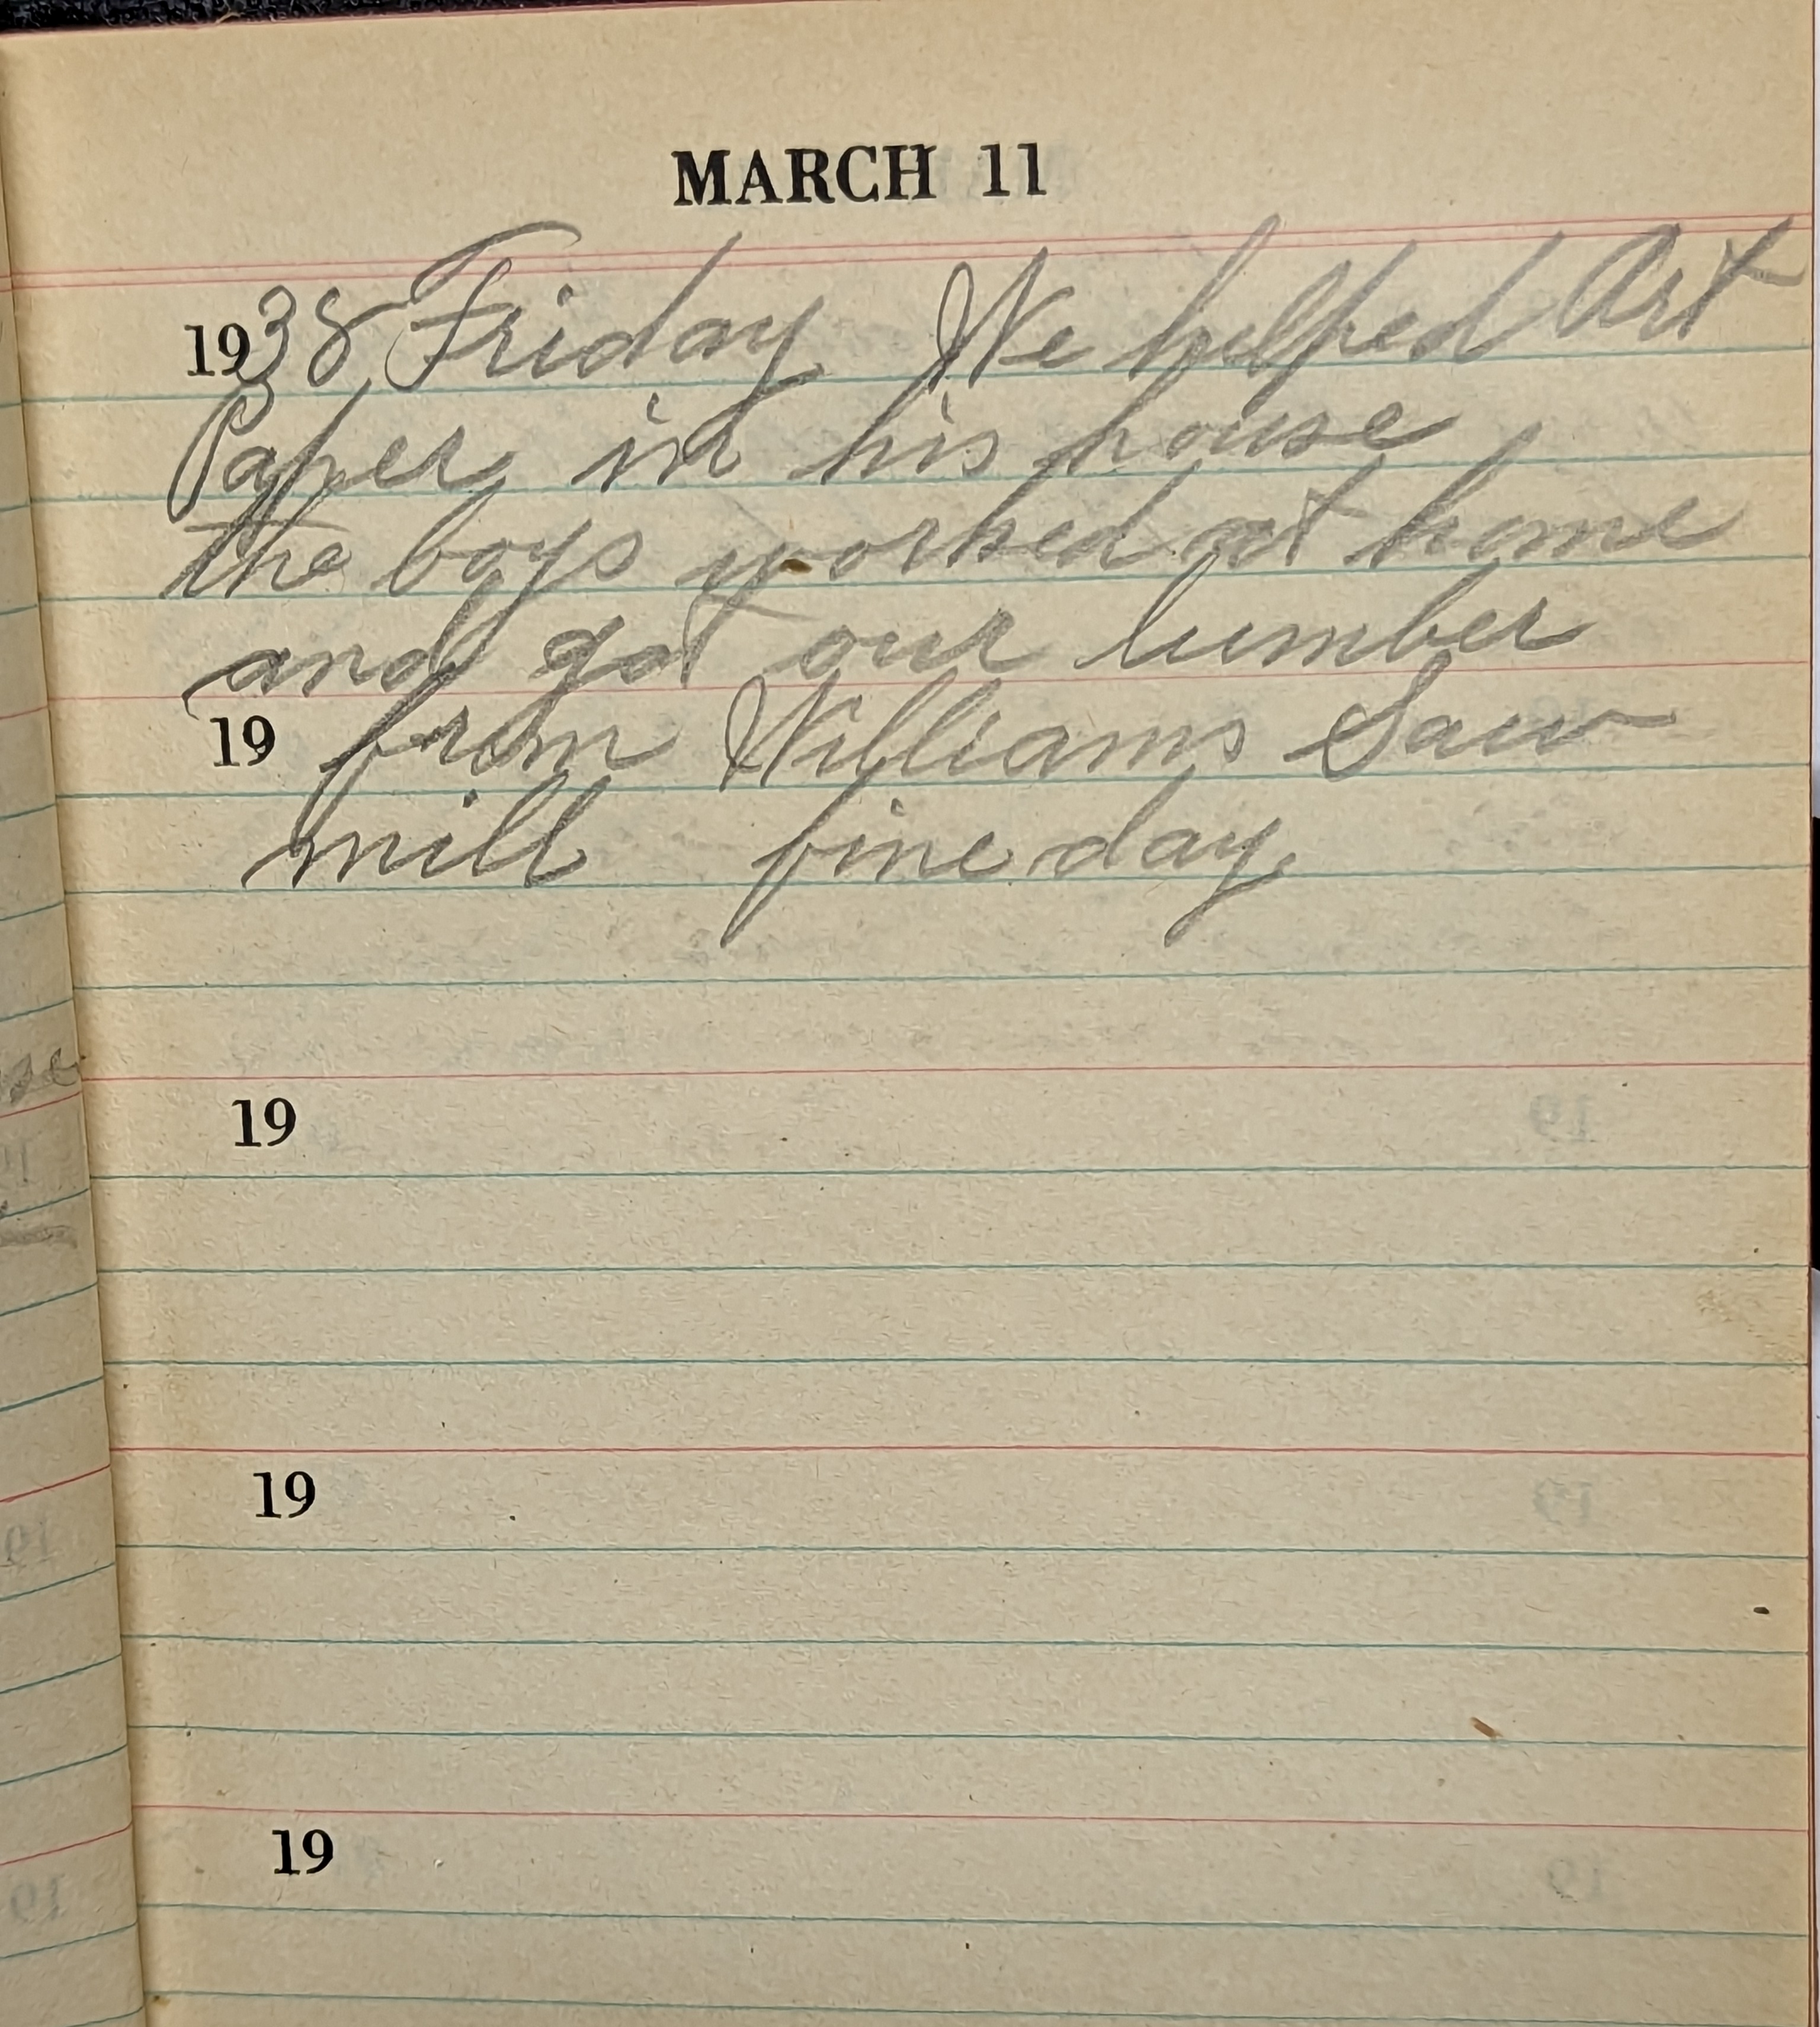 MARCH 11
1938 Friday We helped Art
Paper in his house
the boys worked at home
and got our lumber
19 from Williams Saw
mill fine day
19
19
19